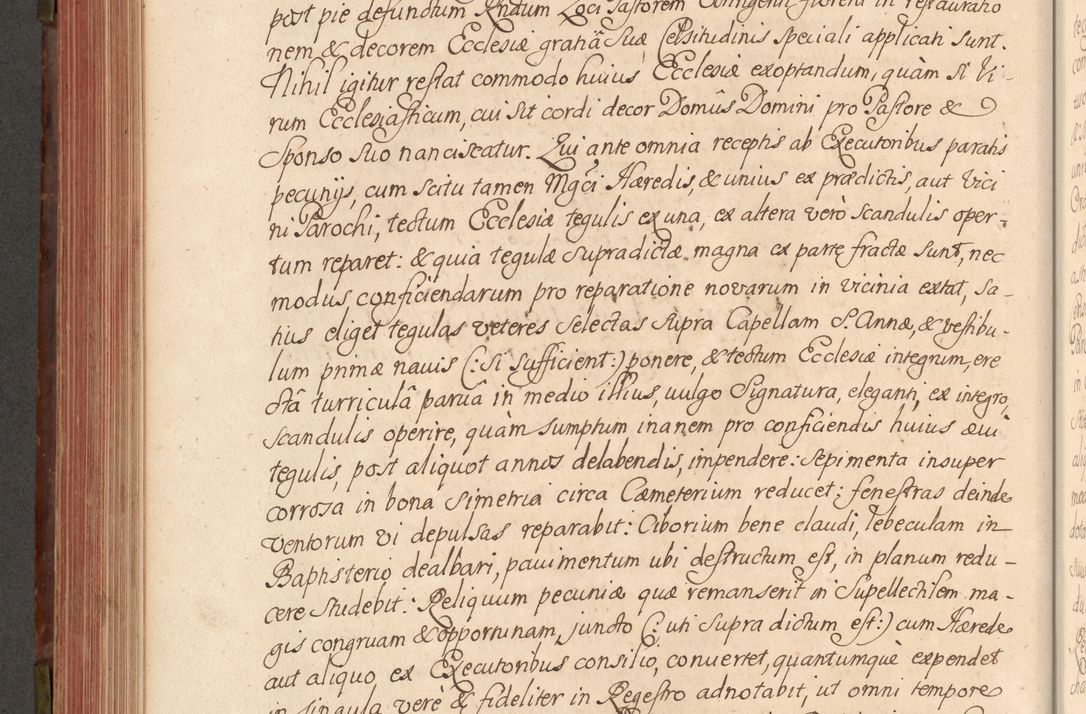 post pie defunctum Rndum Loci Pastorem
nem & decorem Ecclesiæ gratiâ Suæ Celsitudinis speciali applicati sunt.
Nihil igitur restat commodo huius Ecclesiæ exoptandum, quàm si Vi-
rum Ecclesiasticum, cui sit cordi decor Domûs Domini pro Pastore &
Sponso suo nanciscatur. Qui ante omnia receptis ab Executoribus paratis
pecunijs, cum scitu tamen Mgci Hæredis, & unius ex prædictis, aut Vici
ni Parochi, tectum Ecclesiæ tegulis ex una, ex altera verò scandulis oper-
tum reparet: & quia tegulæ supradictæ magna ex parte fractæ sunt, nec
modus conficiendarum pro reparatione novarum in vicinia extat, sa-
tius eliget tegulas veteres selectas supra Capellam S. Annæ, & vestibu-
lum primæ navis (: si sufficient:) ponere, & tectum Ecclesiæ integrum, ere
ctâ turriculâ parvâ in medio illius, vulgo Signatura, eleganti, ex integro
scandulis operire, quàm sumptum inanem pro conficiendis huius ævi
tegulis, post aliquot annos delabendis, impendere: sepimenta insuper
corrosa in bona simetria circa Cæmeterium reducet; fenestras deinde
ventorum vi depulsas reparabit: Ciborium bene claudi, tebeculam in
Baptisterio dealbari, pavimentum ubi destructum est, in planum redu-
cere studebit: Reliquum pecuniæ quæ remanserit in supellectilem ma-
gis congruam & opportunam, juncto (: uti supra dictum est:) cum Hærede
aut aliquo ex Executoribus consilio, convertet, quantumquè expendet
in singula verè & fideliter in Regestro adnotabit, ut omni tempore